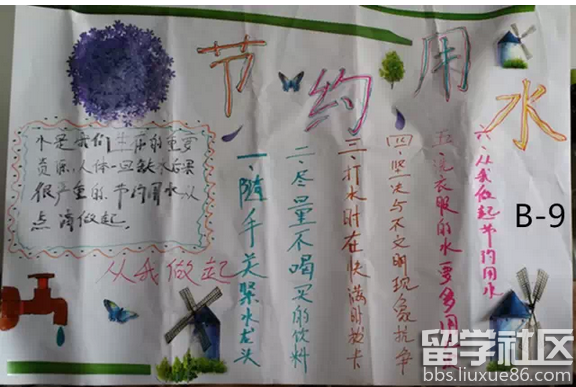 节约用水
水是我们生命的重要
资源,人体一旦缺水后果
很严重的。节约用水从
点滴做起。
从我做起
一随手关紧水龙头
二、尽量不喝买的饮料
三、打水时在快满时拔卡
四、坚决与不文明现象抗争
五、洗衣服的水要多用
六、从我做起节约用水
B-9
留学社区
bbs.liuxue86.com